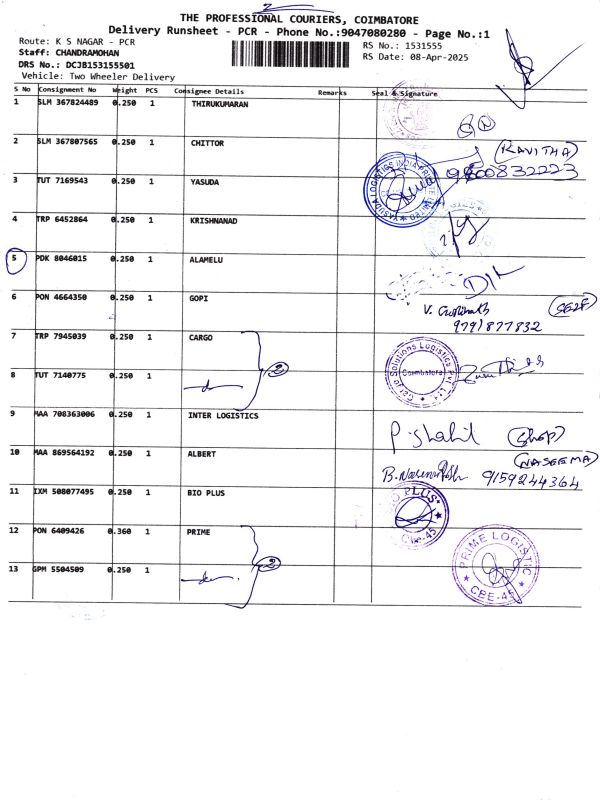 THE PROFESSIONAL COURIERS, COIMBATORE
Delivery Runsheet - PCR - Phone No.:9047080280 - Page No.:1
Route: K S NAGAR - PCR
RS No.: 1531555
Staff: CHANDRAMOHAN
RS Date: 08-Apr-2025
DRS No.: DCJB153155501
Vehicle: Two Wheeler Delivery
S No Consignment No Weight PCS Consignee Details Remarks Seal & Signature
1 SLM 367824489 0.250 1 THIRUKUMARAN
2 SLM 367807565 0.250 1 CHITTOR (KAVITHA)
9600832223
3 TUT 7169543 0.250 1 YASUDA
YASUDA LOGISTICS INDIA PRIVATE LIMITED
4 TRP 6452864 0.250 1 KRISHNANAD
5 PDK 8046015 0.250 1 ALAMELU
6 PON 4664350 0.250 1 GOPI
V. Gopinath (SELF)
9791877832
7 TRP 7945039 0.250 1 CARGO
2
Cargo Solutions Logistics Pvt. Ltd.
Coimbatore
8 TUT 7140775 0.250 1
9 MAA 708363006 0.250 1 INTER LOGISTICS
P. Shahil (Shop)
10 MAA 869564192 0.250 1 ALBERT (NASEEMA)
9159244364
11 IXM 508077495 0.250 1 BIO PLUS
BIO PLUS
Cbe-45
12 PON 6409426 0.360 1 PRIME
2
PRIME LOGISTIC
CBE-45
13 GPM 5504509 0.250 1